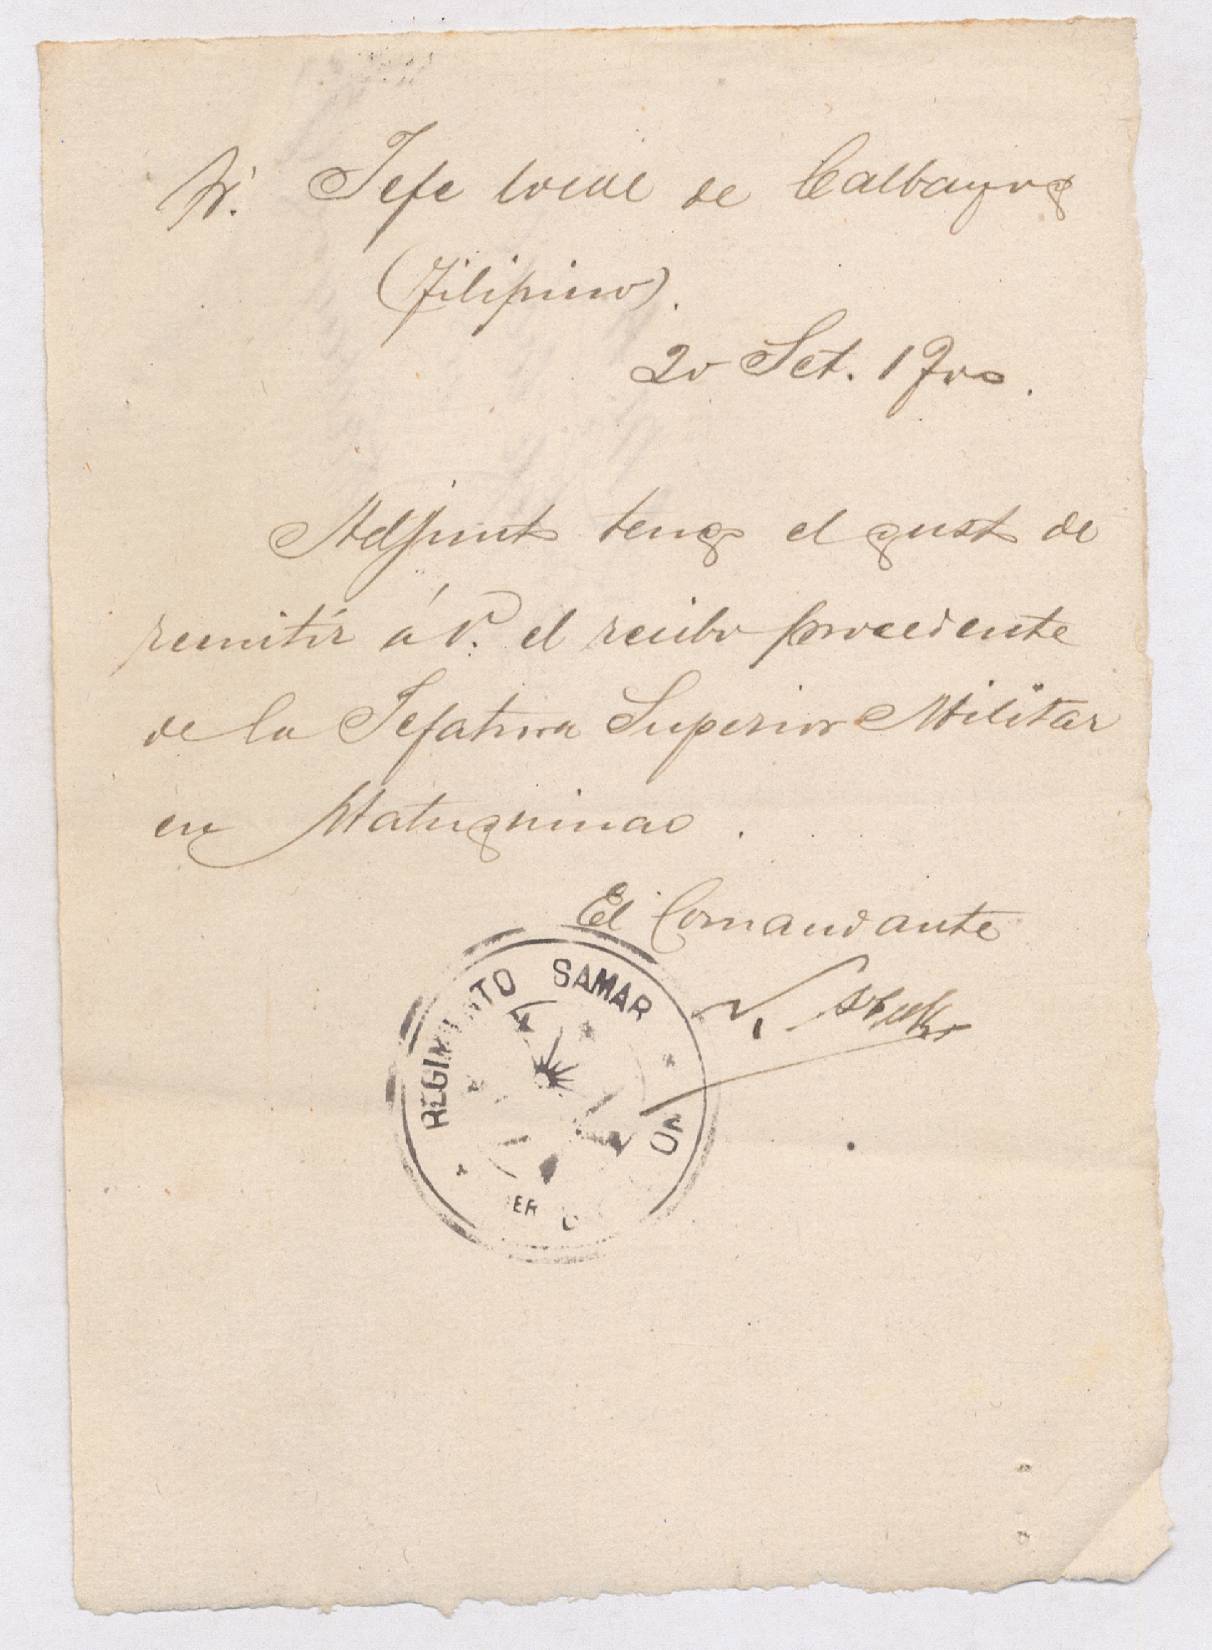 Sr. Jefe local de Calbayog
(Filipino).
20 Set. 1900.
Adjunto tengo el gusto de
remitir á V. el recibo procedente
de la Jefatura Superior Militar
en Matuguinao.
El Comandante
REGIMIENTO SAMAR